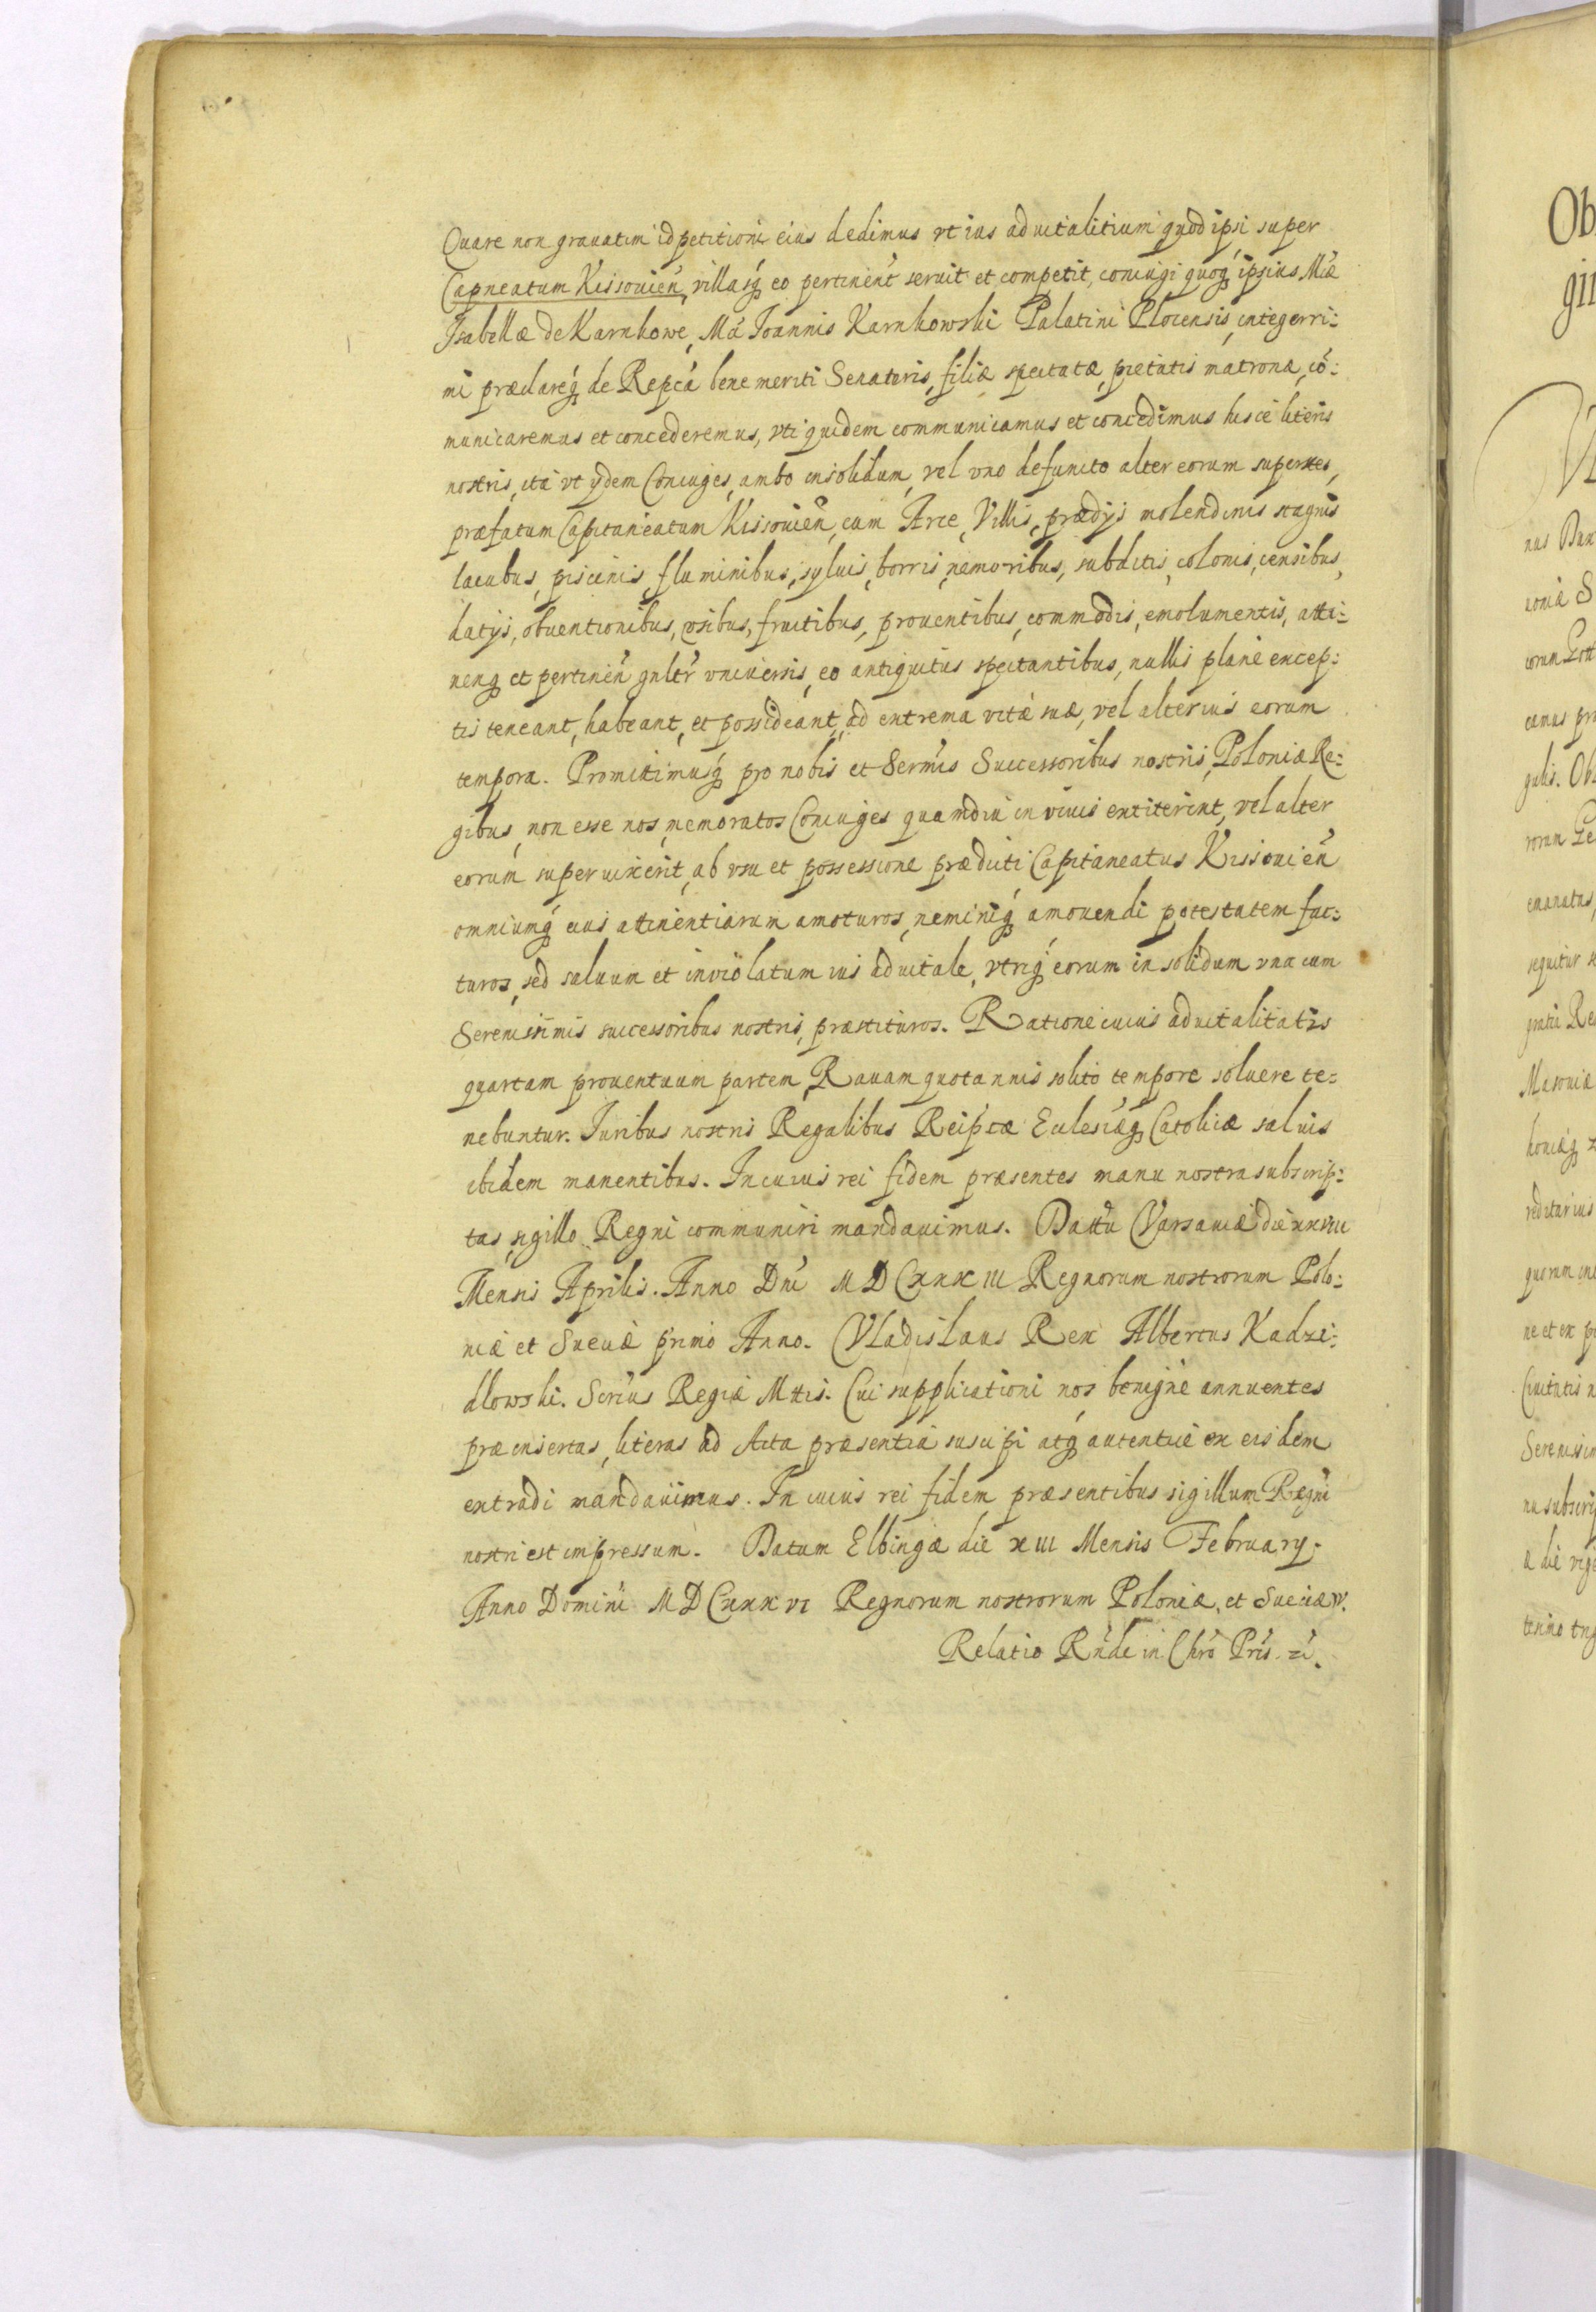 Quare non grauatim id petitioni eius dedimus vt ius aduitalitium quod ipsi super
Capneatum Kissouien̄, villasq́ eo pertinen̄t seruit et competit, coniugi quoq́ ipsius Mcæ
Isabellæ de Karnkowe, Mci Ioannis Karnkowski Palatini Plocensis, integerri:
mi præclareq́ de Repcá bene meriti Senatoris, filiæ spectatæ, pietatis matronæ, cō:
municaremus et concederemus, vti quidem communicamus et concedimus hisce literis
nostris, ita vt ÿdem Coniuges, ambo insolidum, vel vno defuncto alter eorum superstes,
præfatum Capitaneatum Kissouien̄, cum Arce, Villis, prædÿs molendinis stagnis
lacubus, piscinis, fluminibus, syluis, borris, nemoribus, subditis, colonis, censibus,
datÿs, obuentionibus, vsibus, fructibus, prouentibus, commodis, emolumentis, atti:
nenq́ et pertinen̄ gnltr̄ vniuersis, eo antiquitus spectantibus, nullis plane excep:
tis teneant, habeant, et possideant, ad extrema vitæ suæ, vel alterius eorum
tempora. Promittimusq́ pro nobis et Sermis Successoribus nostris, Poloniæ Re:
gibus, non esse nos, memoratos Coniuges quamdiu in viuis extiterint, vel alter
eorum superuixerit, ab vsu et possessione prædicti Capitaneatus Kissouien̄
omniumq́ eius attinentiarum amoturos, neminiq́ amouendi potestatem fac:
turos, sed saluum et inuiolatum ius aduitale, vtriq́ eorum in solidum vna cum
Serenissimis successoribus nostris, præstituros. Ratione cuius aduitalitatis
quartam prouentuum partem, Rauam quotannis solito tempore soluere te:
nebuntur. Iuribus nostris Regalibus Reipcæ Eclesiæq́ Catolicæ saluis
ibidem manentibus. In cuius rei fidem præsentes manu nostra subscrip:
tas, sigillo Regni communiri mandauimus. Dattū Varsauiæ die xxviii
Mensis Aprilis. Anno Dni MDCxxxiii Regnorum nostrorum Polo:
niæ et Sueciæ primo Anno. Vladislaus Rex Albertus Kadzi:
dlowski. Scrius Regiæ Mttis. Cui supplicationi nos benigne annuentes
præinsertas, literas ad Acta præsentia suscipi atq́ autentice ex eisdem
extradi mandauimus. In cuius rei fidem præsentibus sigillum Regni
nostri est impressum. Datum Elbingæ die xiii Mensis Februarÿ.
Anno Domini MDCxxxvi Regnorum nostrorum Poloniæ, et Sueciæ iv.
Relatio Rn̄di in Chrō Pris. zī.